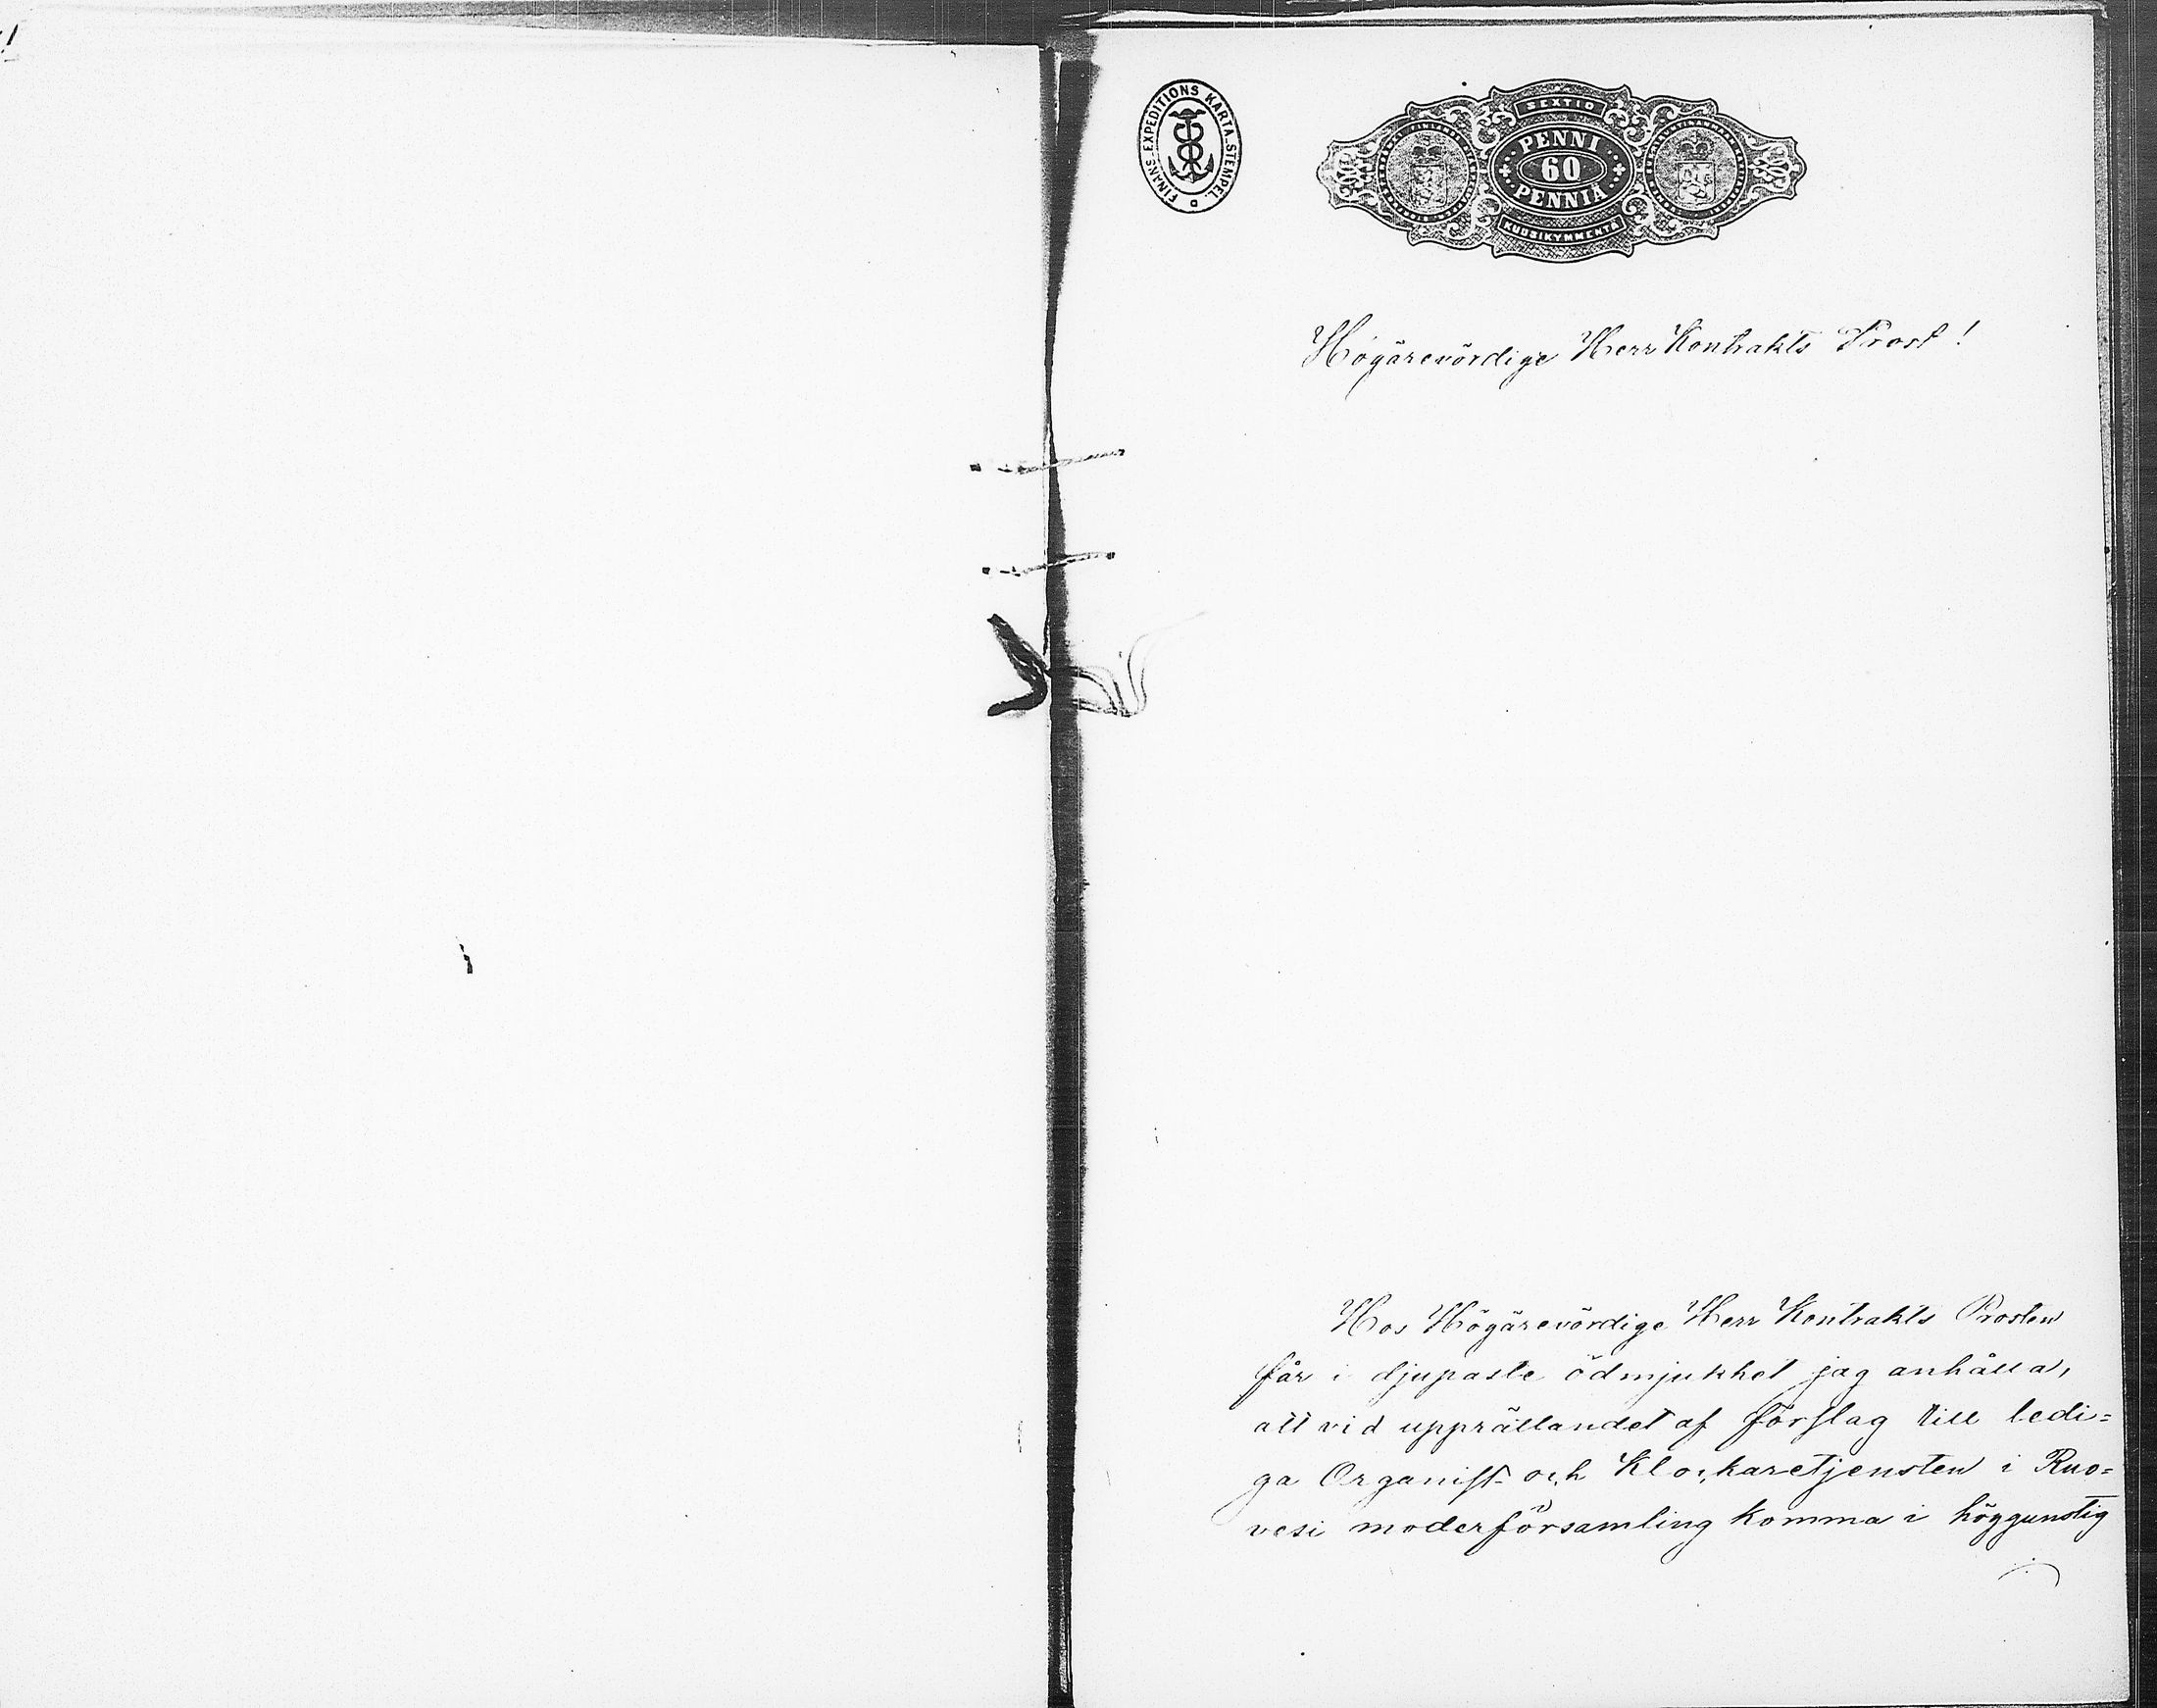 FINANS-EXPEDITIONS KARTA STEMPEL.
SEXTIO
PENNI
60
PENNIÄ
KUUSIKYMMENTÄ
Högärevördige Herr Kontrakts Prost!
Hos Högärevördige Herr Kontrakts Prosten
får i djupaste ödmjukhet jag anhålla,
att vid upprättandet af förslag till ledi=
ga Organist- och Klockaretjensten i Ruo=
vesi moderförsamling komma i höggunstig